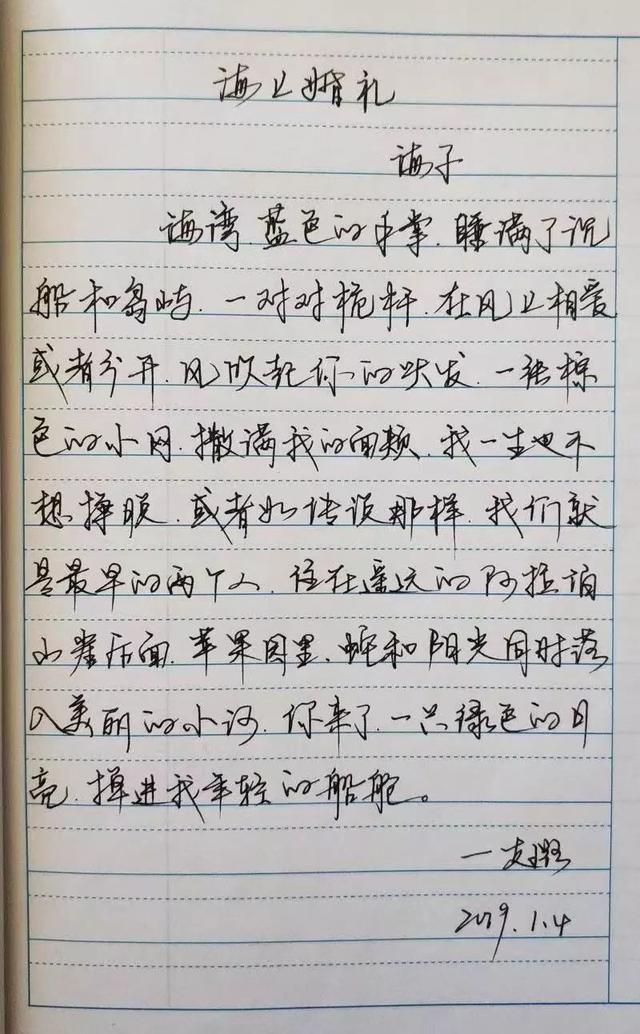 海上婚礼
海子
海湾.蓝色的手掌.睡满了沉
船和岛屿.一对对桅杆.在风上相爱
或者分开.风吹起你的头发.一张棕
色的小网.撒满我的面颊.我一生也不
想挣脱.或者如传说那样.我们就
是最早的两个人.住在遥远的阿拉伯
山崖后面.苹果园里.蛇和阳光同时落
入美丽的小河.你来了.一只绿色的月
亮.掉进我年轻的船舱。
一支
2019.1.4